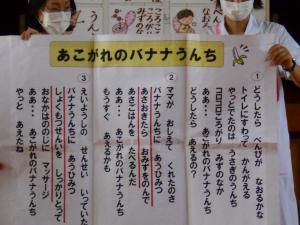 あこがれのバナナうんち
① どうしたら べんぴが なおるかな
トイレにすわって かんがえる
やっとでたのは うさぎのうんち
コロコロころがり みずのなか
どうしたら あえるの?
ああ・・ あこがれのバナナうんち
② ママが おしえて くれたのさ
バナナうんちに あうひみつ
あさおきたら おみずをのんで
あさごはんを たべるんだ
もうすぐ あえるかも
ああ・・・ あこがれのバナナうんち
③ えいようしの せんせい いっていた
バナナうんちに あうひみつ
しょくもつせんいを しっかりとって
おなかはののじに マッサージ
やっと あえたね
ああ・・・ あこがれのバナナうんち